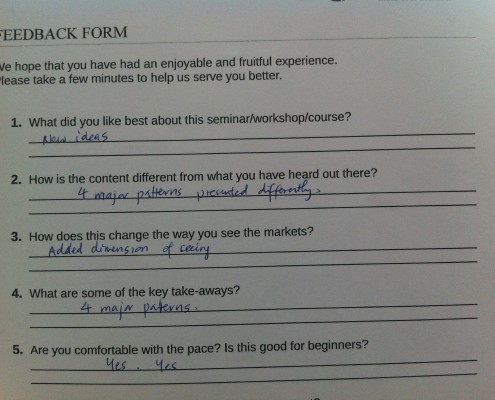 FEEDBACK FORM
We hope that you have had an enjoyable and fruitful experience.
Please take a few minutes to help us serve you better.
1. What did you like best about this seminar/workshop/course?
New ideas
2. How is the content different from what you have heard out there?
4 major patterns presented differently.
3. How does this change the way you see the markets?
Added dimension of seeing
4. What are some of the key take-aways?
4 major patterns.
5. Are you comfortable with the pace? Is this good for beginners?
Yes. Yes